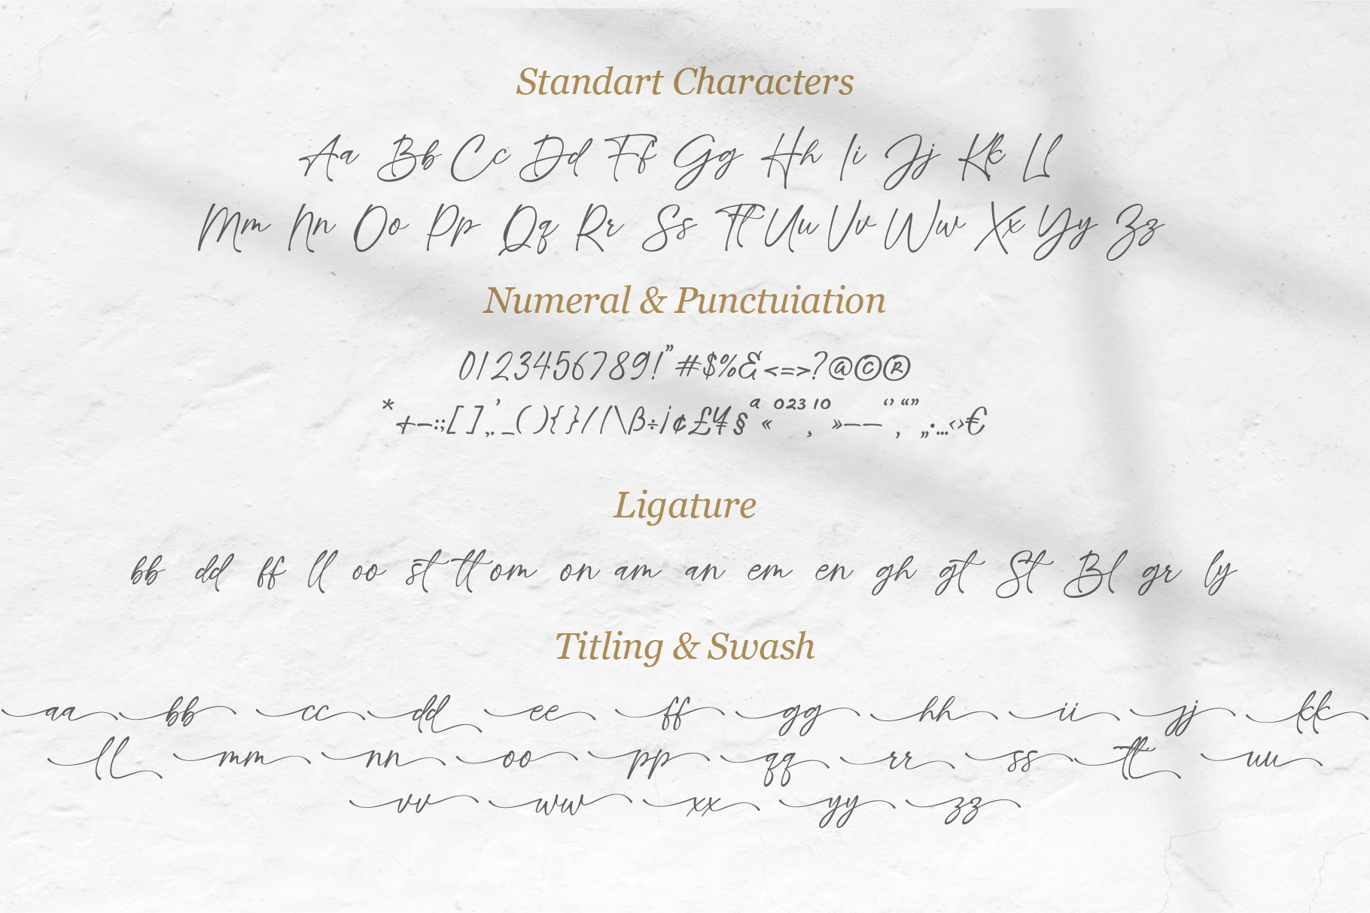 Standart Characters
Aa Bb Cc Dd Ff Gg Hh Ii Jj Kk Ll
Mm Nn Oo Pp Qq Rr Ss Tt Uu Vv Ww Xx Yy Zz
Numeral & Punctuiation
0123456789!”#$%&<=>?@©®
*+−:;[ ],.’_( ){ }/|\ß÷¡¢£¥§ª«º²³¹º¸»–—‘’‚“”„·…‹›€
Ligature
bb dd ff ll oo st tt om on am an em en gh gt St Bl gr ly
Titling & Swash
aa bb cc dd ee ff gg hh ii jj kk
ll mm nn oo pp qq rr ss tt uu
vv ww xx yy zz